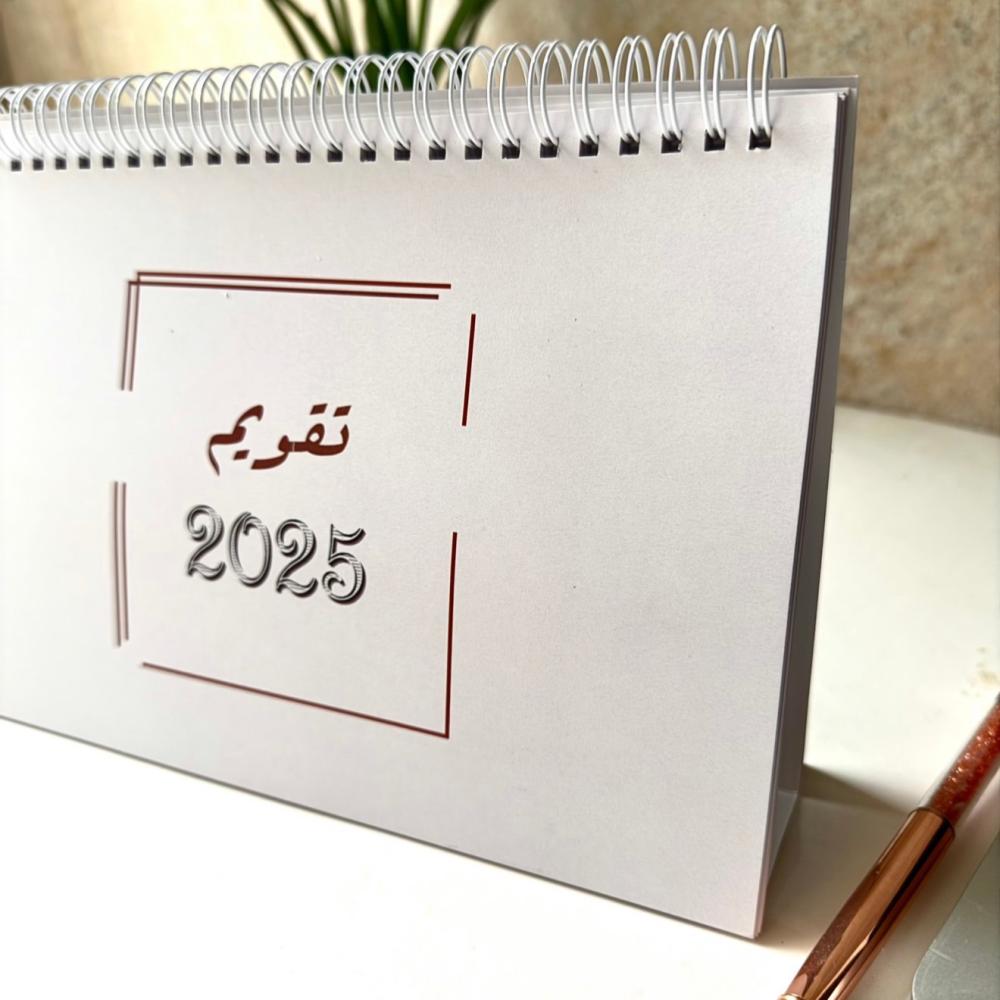 تقويم
2025